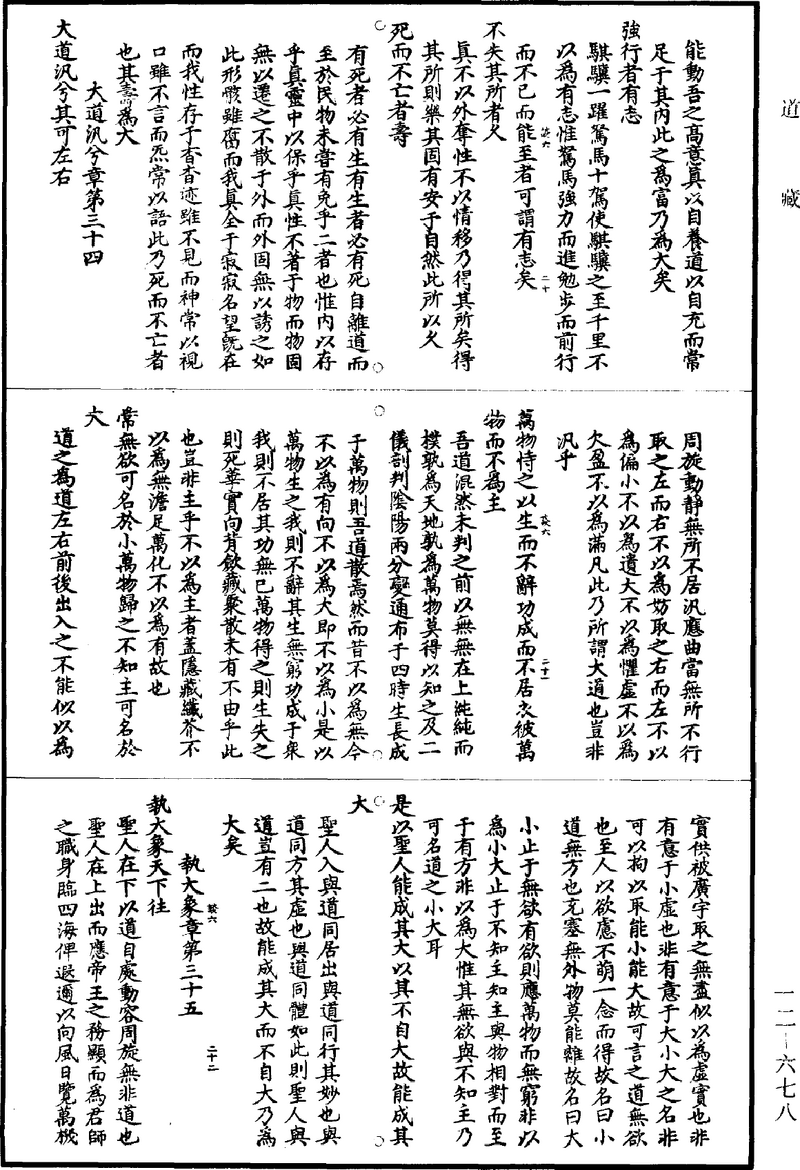 道藏
能動吾之高意真以自養道以自充而常
足于其内此之為富乃為大矣
強行者有志
騏驥一躍駑馬十駕使騏驥之至千里不
以為有志惟駑馬強力而進勉步而前行
而不已而能至者可謂有志矣
談六
二十
不失其所者久
真不以外奪性不以情移乃得其所矣得
其所則樂其固有安于自然此所以久
死而不亡者壽
有死者必有生有生者必有死自離道而
至於民物未嘗有免乎二者也惟内以存
乎真靈中以保乎真性不著于物而物固
無以遷之不散于外而外固無以誘之如
此形骸雖腐而我真全于寂寂名望既在
而我性存于杳杳迹雖不見而神常以視
口雖不言而炁常以語此乃死而不亡者
也其壽為大
大道汎兮章第三十四
大道汎兮其可左右
周旋動靜無所不居汎應曲當無所不行
取之左而右不以為妨取之右而左不以
為偏小不以為遺大不以為懼虛不以為
欠盈不以為滿凡此乃所謂大道也豈非
汎乎
萬物恃之以生而不辭功成而不居衣彼萬
談六
二十一
物而不為主
吾道混然未判之前以無無在上純純而
樸孰為天地孰為萬物莫得以知之及二
儀剖判陰陽兩分變通布于四時生長成
于萬物則吾道散焉然而昔不以為無今
不以為有向不以為大即不以為小是以
萬物生之我則不辭其生無窮功成于衆
我則不居其功無已萬物得之則生失之
則死華實向背飲藏聚散未有不由乎此
也豈非主乎不以為主者蓋隱藏纖芥不
以為無澹足萬化不以為有故也
常無欲可名於小萬物歸之不知主可名於
大
道之為道左右前後出入之不能似以為
實供被廣宇取之無盡似以為虛實也非
有意于小虛也非有意于大小大之名非
可以拘以取能小能大故可言之道無欲
也至人以欲慮不萌一念而得故名曰小
道無方也充塞無外物莫能離故名曰大
小止于無欲有欲則應萬物而無窮非以
為小大止于不知主知主與物相對而至
于有方非以為大惟其無欲與不知主乃
可名道之小大耳
是以聖人能成其大以其不自大故能成其
大
聖人入與道同居出與道同行其妙也與
道同方其虛也與道同體如此則聖人與
道豈有二也故能成其大而不自大乃為
大矣
談六
二十二
執大象章第三十五
執大象天下往
聖人在下以道自處動容周旋無非道也
聖人在上出而應帝王之務顯而為君師
之職身臨四海俾遐邇以向風日覽萬機
一二－六七八